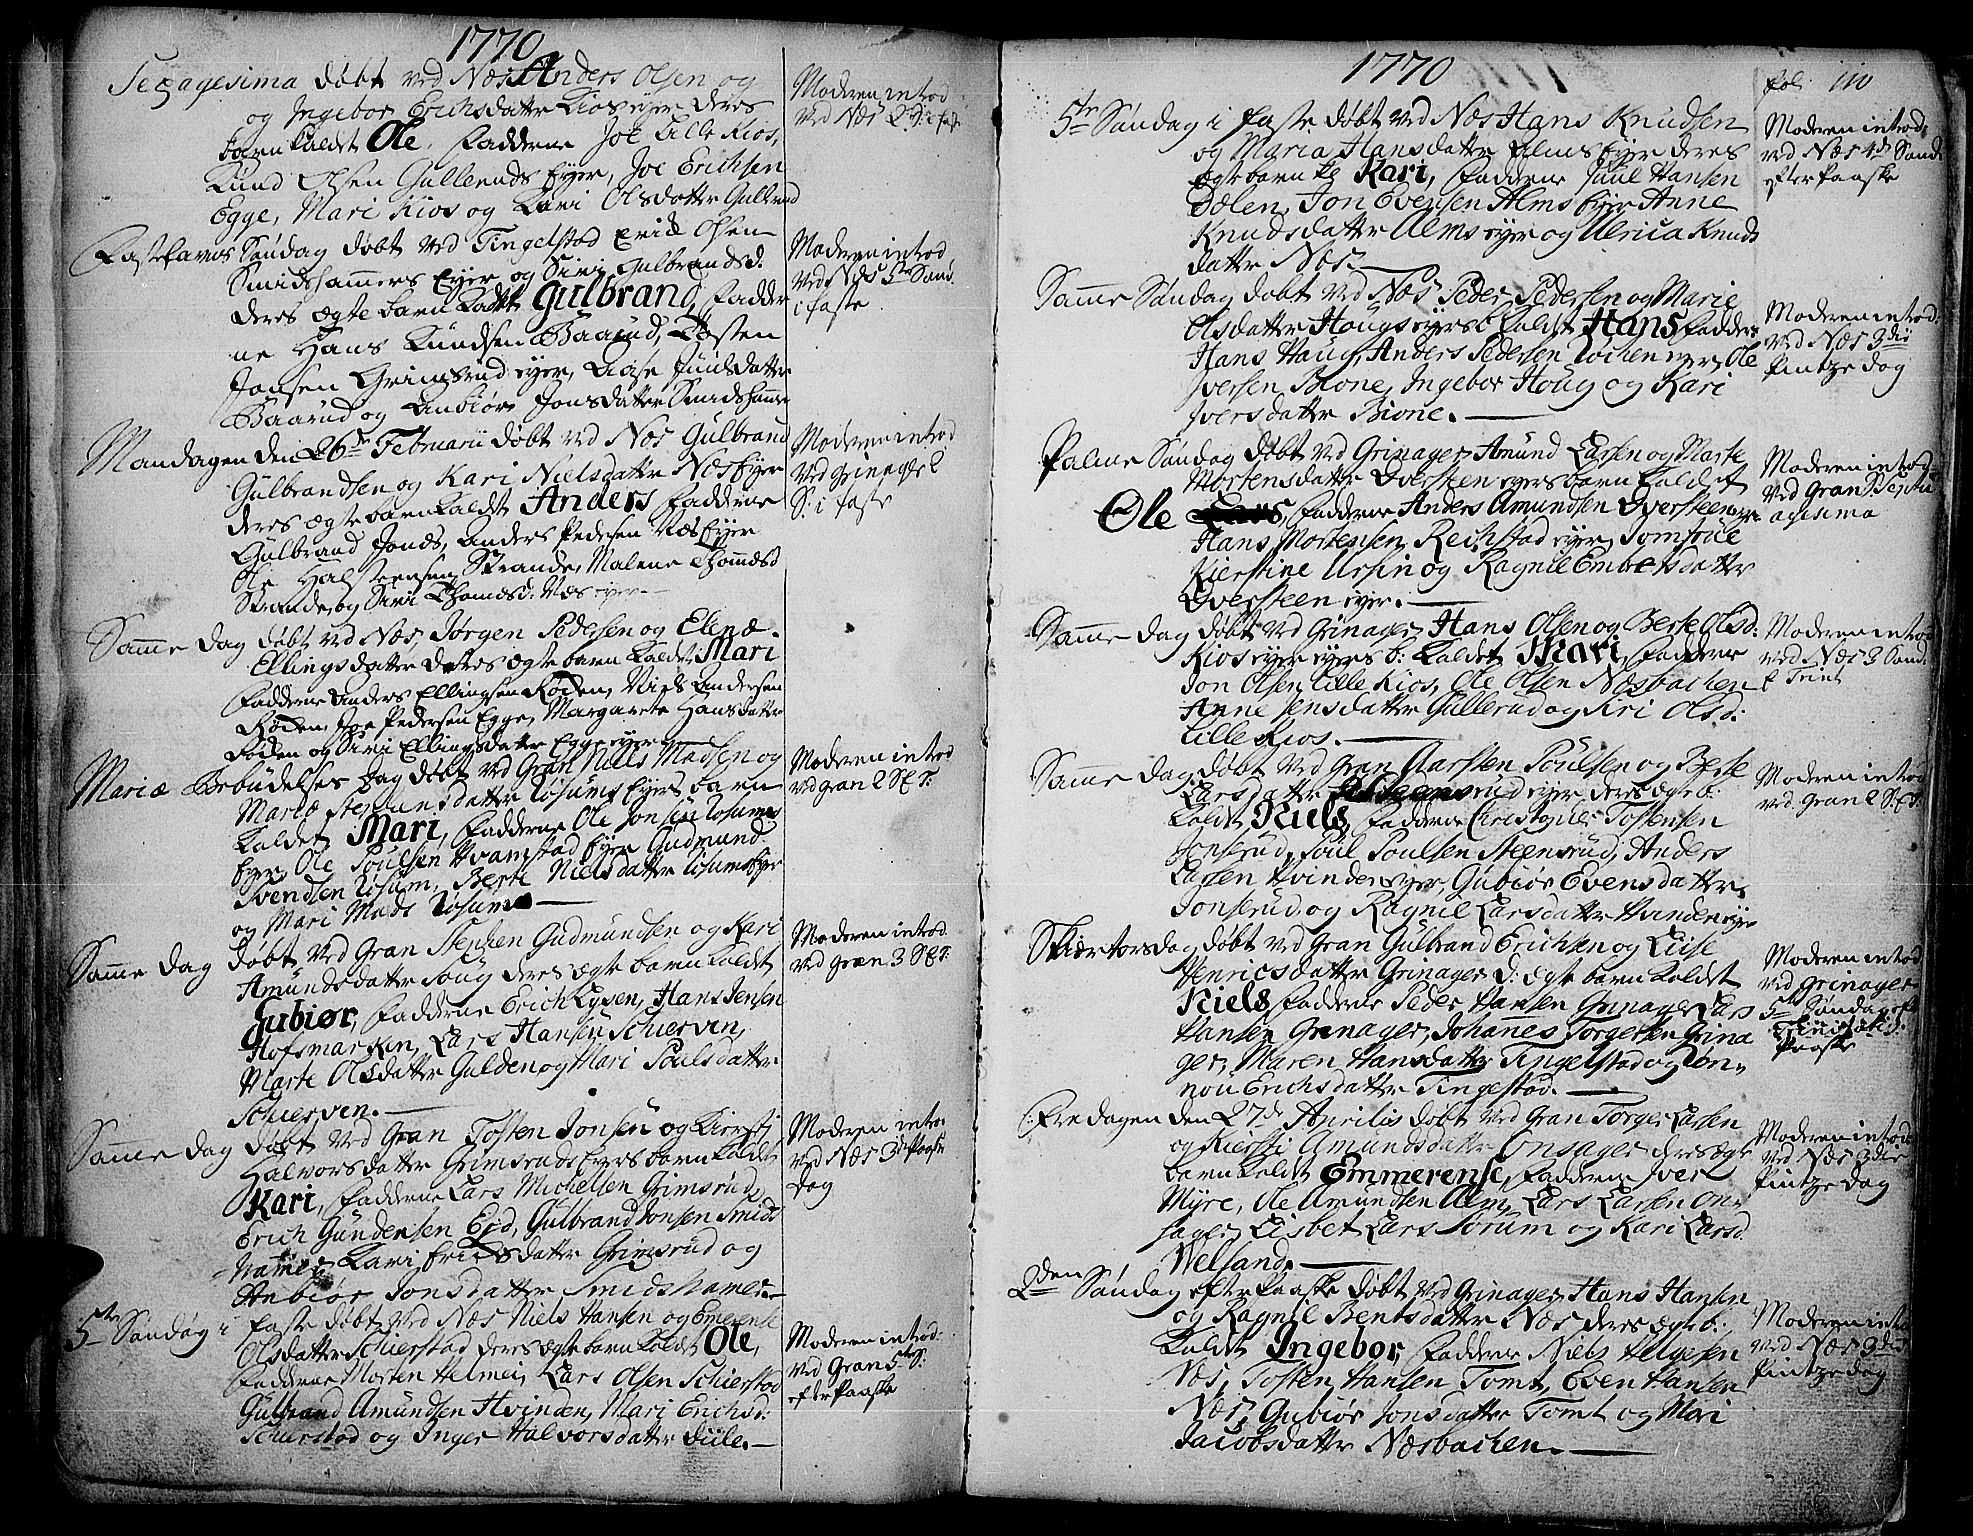 1770
Sexagesima døbt ved Næs Anders Olsen og
og Ingebor Erichsdatter Kios eyer deres
barn kaldet Ole. Fadderne Joe Lille Kios,
Knud Olsen Gulleruds Eyer, Joe Erichsen
Egge, Mari Kios og Kari Olsdatter Gullerud
Moderen introd
ved Næs 2 S: i faste
Fastelavns Søndag døbt ved Tingelstad Erich Olsen
Smidshammers Eyer og Siri Gulbrandsd.
deres ægte barn kaldet Gulbrand, Fadder
ne Hans Knudsen Baarud, Tosten
Jonsen Grimsrud eyer, Aase Juulsdatter
Baarud og Anbiør Jonsdatter Smidshammer
Moderen introd
ved Næs 5te Sønd.
i faste
Mandagen den 26de Februarii døbt ved Næs Gulbrand
Gulbrandsen og Kari Nielsdatter Næs Eyer
deres ægte barn kaldet Anders Fadderne
Gulbrand Jonds, Anders Pedersen Næs Eyer
Ole Halsteensen Strande, Malene Thommesd
Strande og Siri Thomesd: Næs eyer.
Moderen introd
ved Grinager
S: i faste
Samme Dag døbt ved Næs, Jørgen Pedersen og Elenæ
Ellingsdatter deres ægte barn kaldet Mari
Fadderne Anders Ellingsen Røden, Niels Andersen
Røden, Joe Pedersen Egge, Margarete Hansdatter
Røden og Siri Ellingsdatter Egge eyer
Mariæ Bebudelses Dag døbt ved Gran Niels Madsen og
Mariæ Stephensdatter Josums Eyers barn
kaldet Mari, Fadderne Ole Jonsen Josums
Eyer, Ole Poulsen Hvamstad Eyer Gudmund
Svendsen Josum, Berte Nielsdatter Josums Eyer
og Mari Mads Josum
Moderen introd
ved Gran 2 S E T:
Samme Dag døbt ved Gran Stephen Gudmundsen og Kari
Amundsdatter Houg deres ægte barn kaldet
Gubiør, Fadderne Erich Lysen, Hans Jensen
Hofsmarken, Lars Hansen Schierven,
Marte Olsdatter Gulden og Mari Poulsdatter
Schierven.
Moderen introd
ved Gran 3 S E T:
Samme Dag døbt ved Gran Tosten Jonsen og Kiersti
Halvorsdatter Grimsruds Eyers barn kaldet
Kari, Fadderne Lars Michelsen Grimsrud,
Erich Gundersen Egd, Gulbrand Jonsen Smids
hamer, Kari Erichsdatter Grimsrud og
Anbiør Jonsdatter Smidshamer
Moderen intro
ved Næs 3die Paaske
dag
5te Søndag i Faste døbt ved Næs Niels Hansen og Emerense
Olsdatter Schierstad deres ægte barn kaldet Ole,
Fadderne Morten Helmei, Lars Olsen Schierstad
Gulbrand Amundsen Hvinden, Mari Erichsd:
Schierstad og Inger Halvorsdatter
Moderen introd:
ved Gran 5te S:
efter Paaske
1770
fol: 110
5te Søndag i Faste døbt ved Næs Hans Knudsen
og Maria Hansdatter Alms Eyer deres
ægte barn k: Kari, Fadderne Juul Hansen
Dælen, Jon Evensen Alms Eyer Anne
Knudsdatter Alms eyer og Ulrica Knuds
datter Næs.
Moderen introd:
ved Næs 4de Sønd:
efter Paaske
Samme Søndag døbt ved Næs Peder Pedersen og Marie
Olsdatter Hougs eyers b. kaldet Hans Fadderne
Hans Haug, Anders Pedersen Lochen eyer, Ole
Iversen Bione, Ingebor Houg og Kari
Iversdatter Bione.
Moderen introd:
ved Næs 3die
Pintze dag
Palme Søndag døbt ved Grinager Amund Larsen og Marte
Mortensdatter Dversteen eyers barn kaldet
Ole, Fadderne Anders Amundsen Dversteen eyer
Hans Mortensen Reichstad eyer, Jomfrue
Kierstine Ursin og Ragnil Embretsdatter
Dversteen eyer.
Moderen introd
ved Gran Septu
agesima
Samme Dag døbt ved Grinager Hans Olsen og Berte Olsd:
Kios eyer eyers b: kaldet Mari, Fadderne
Jon Olsen Lille Kios, Ole Olsen Næsbachen
Anne Jensdatter Gullerud og Kri Olsd:
Lille Kios.
Moderen introd
ved Næs 3 Sønd.
E Trint
Samme Dag døbt ved Gran Aarsten Poulsen og Berte
Larsdatter eyer deres ægte b:
kaldt Niels Fadderne Christopher Tostensen
Jonsrud, Poul Poulsen Steensrud, Anders
Larsen Hvinden eyer, Gubiør Evensdatter
Jonsrud og Ragnil Larsdatter Hvinden eyer
Moderen introd
ved Gran 2 S. E T.
Skiærtorsdag døbt ved Gran Gulbrand Erichsen og Lisse
Henricsdatter Grinager d: ægte barn kaldet
Niels, Fadderne Peder Hansen Grinager, Lars
Hansen Grinager, Johannes Torgersen Grina
ger, Maren Hansdatter Tingelstad og Røn,,
nou Erichsdatter Tingelstad.
Moderen introd
ved Grinager
5te Søndag eft
Paaske
Fredagen den 27de Aprilis døbt ved Gran Torger Larsen
og Kiersti Amundsdatter Onsager deres ægte
barn kaldt Emmerense, Fadderne Iver
Myre, Ole Amundsen Alm, Lars Larsen On,,
sager, Lisbet Lars Jorum og Kari Larsd.
Welsand.
Moderen introd
ved Næs 3die
Pintze dag
2den Søndag efter Paaske døbt ved Grinager Hans Hansen
og Ragnil Bentsdatter Næs deres ægte b:
kaldt Ingebor, Fadderne Niels Helgesen
Næs, Tosten Hansen Tomt, Even Hansen
Næs, Gubiør Jonsdatter Tomt og Mari
Jacobsdatter Næsbachen.
Moderen intro
ved Næs 3die
Pintzedag